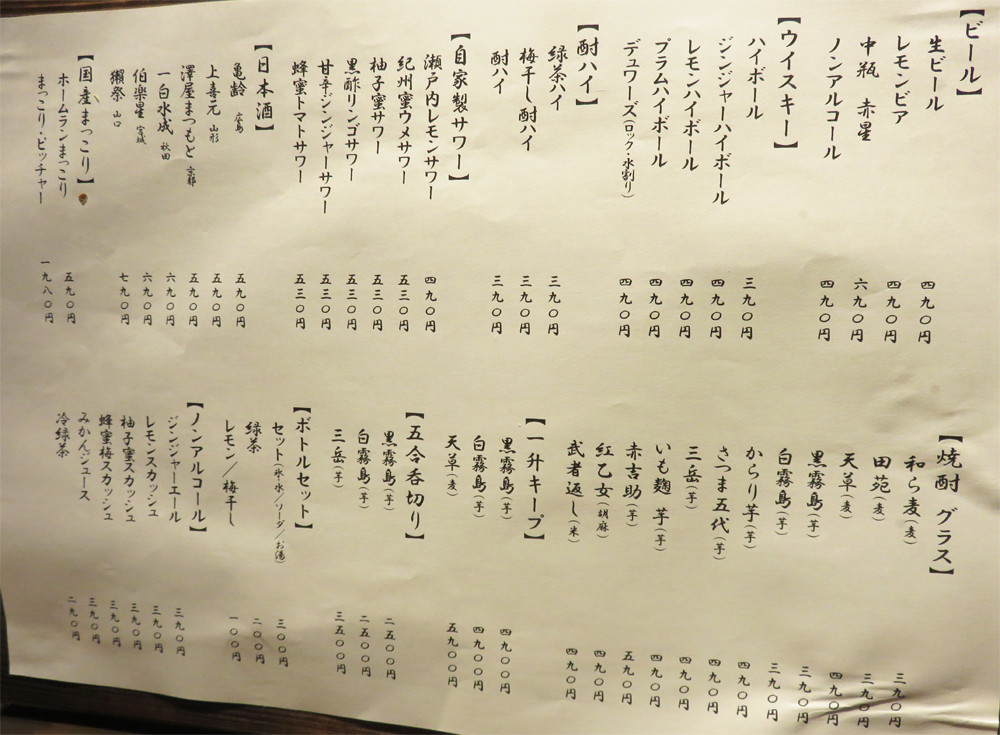 【ビール】
生ビール 四九〇円
レモンビア 四九〇円
中瓶 赤星 六九〇円
ノンアルコール 四九〇円
【ウイスキー】
ハイボール 三九〇円
ジンジャーハイボール 四九〇円
レモンハイボール 四九〇円
プラムハイボール 四九〇円
デュワーズ(ロック・水割り) 四九〇円
【酎ハイ】
緑茶ハイ 三九〇円
梅干し酎ハイ 三九〇円
酎ハイ 三九〇円
【自家製サワー】
瀬戸内レモンサワー 四九〇円
紀州蜜ウメサワー 五三〇円
柚子蜜サワー 五三〇円
黒酢リンゴサワー 五三〇円
甘辛ジンジャーサワー 五三〇円
蜂蜜トマトサワー 五三〇円
【日本酒】
亀齢 広島 五九〇円
上喜元 山形 五九〇円
澤屋まつもと 京都 五九〇円
一白水成 秋田 六九〇円
伯楽星 宮城 六九〇円
獺祭 山口 七九〇円
【国産まっこり】
ホームランまっこり 五九〇円
まっこり・ピッチャー 一九八〇円
【焼酎 グラス】
和ら麦(麦) 三九〇円
田苑(麦) 三九〇円
天草(麦) 四九〇円
黒霧島(芋) 三九〇円
白霧島(芋) 三九〇円
からり芋(芋) 四九〇円
さつま五代(芋) 四九〇円
三岳(芋) 四九〇円
いも麹 芋(芋) 四九〇円
赤吉助(芋) 五九〇円
紅乙女(胡麻) 四九〇円
武者返し(米) 四九〇円
【一升キープ】
黒霧島(芋) 四九〇〇円
白霧島(芋) 四九〇〇円
天草(麦) 五九〇〇円
【五合呑切り】
黒霧島(芋) 二五〇〇円
白霧島(芋) 二五〇〇円
三岳(芋) 三五〇〇円
【ボトルセット】
セット(氷・水/ソーダ/お湯) 三〇〇円
緑茶 二〇〇円
レモン/梅干し 一〇〇円
【ノンアルコール】
ジンジャーエール 三九〇円
レモンスカッシュ 三九〇円
柚子蜜スカッシュ 三九〇円
蜂蜜梅スカッシュ 三九〇円
みかんジュース 三九〇円
冷緑茶 二九〇円